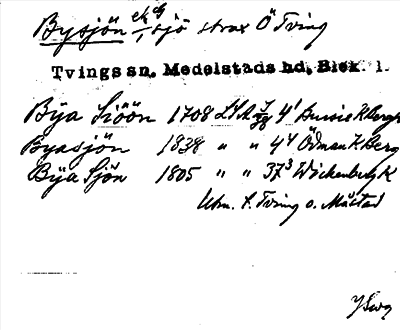 Bysjön ek eg / sjö strax Ö Tving
Tvings sn, Medelstads hd, Blek. l.
Bÿa Siöön 1708 LSA 7/28 4¹
Byasjön 1838 " " 4⁴ Ödman K Berg
Bÿa Sjön 1805 " " 37³ Wickenberg K
Utm. t. Tving o. Måstad